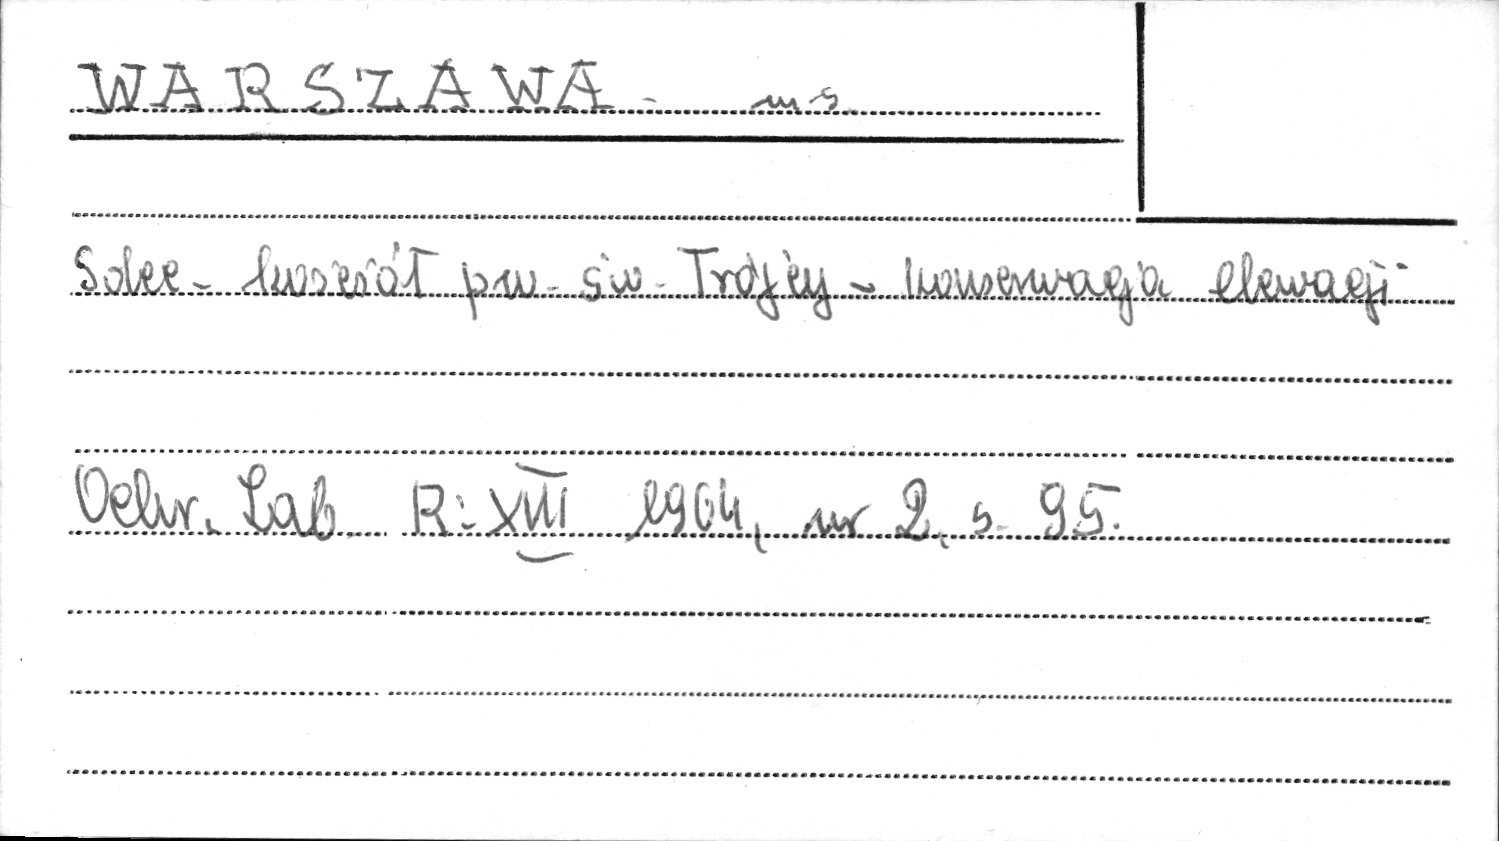 WARSZAWA - m s.
Solec - kościół pw. św. Trójcy - konserwacja elewacji
Ochr. Zab. R: XVII 1964, nr 2, s. 95.